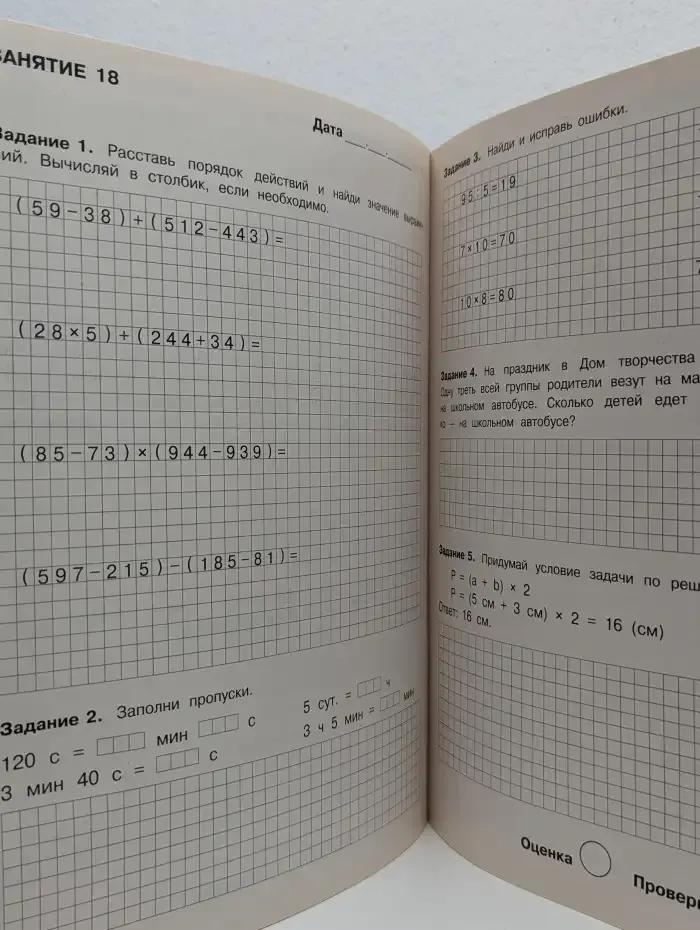 ЗАНЯТИЕ 18
Дата
Задание 1. Расставь порядок действий и найди значение
Вычисляй в столбик, если необходимо.
(59-38)+(512-443)=
(28×5)+(244+34)=
(85-73)×(944-939)=
(597-215)-(185-81)=
Задание 2. Заполни пропуски.
120 с = мин с
3 мин 40 с = с
5 сут. = ч
3 ч 5 мин = мин
Задание 3. Найди и исправь ошибки.
95:5=19
7×10=70
10×8=80
Задание 4. На праздник в Дом творчества
Одну треть всей группы родители везут на
на школьном автобусе. Сколько детей едет
на школьном автобусе?
Задание 5. Придумай условие задачи по
P = (a + b) × 2
P = (5 см + 3 см) × 2 = 16 (см)
Ответ: 16 см.
Оценка